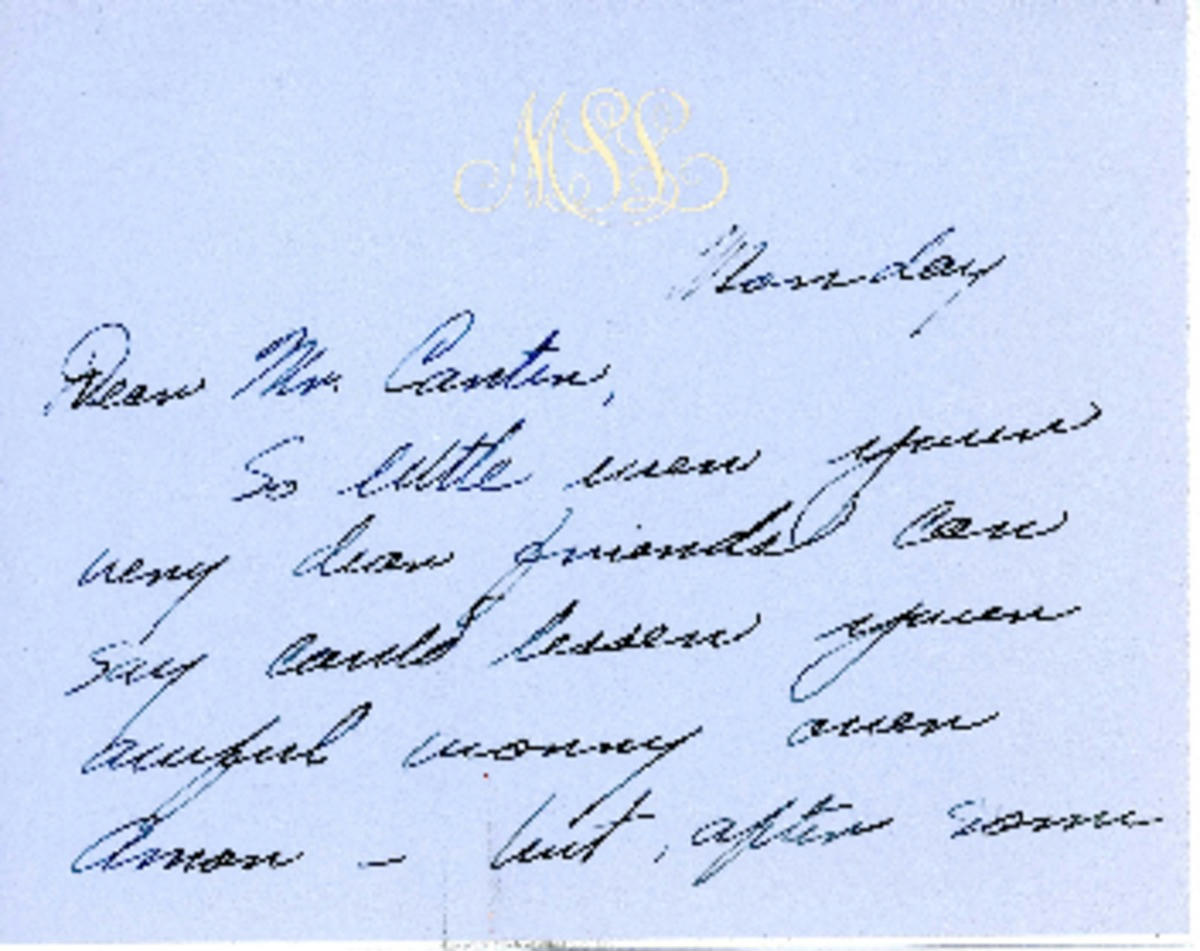 MSL
Monday
Dear Mr. Carter,
So little even your
very dear friends can
say could lessen your
awful worry over
Amon - but, after some